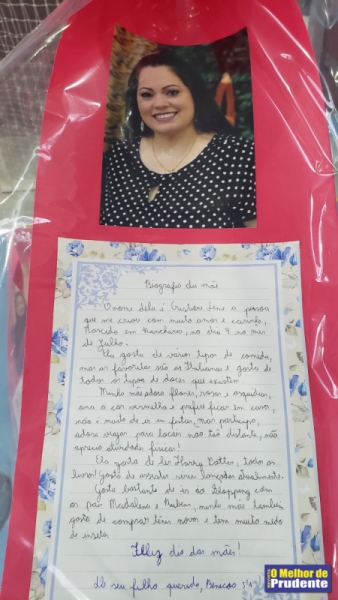 Biografia da mãe
O nome dela é Cristiani Lima a pessoa
que me criou com muito amor e carinho,
Nascida em Rancharia, no dia 9 no mês
de Julho.
Ela gosta de vários tipos de comida,
mas as favoritas são as Italianas e gosta de
todos os tipos de doces que existem.
Minha mãe adora flores, rosas e orquídeas,
ama a cor vermelha e prefere ficar em casa,
não é muito de ir em festas, mas participa,
adora viajar para locais não tão distante, não
aprecia atividade física!
Ela gosta de ler Harry Potter, todos os
livros! Gosta de assistir séries lançadas atualmente.
Gosta bastante de ir ao Shopping com
os pais Madalena e Rubens, minha mãe também
gosta de comprar tênis novos e tem muito medo
de insetos.
Feliz dia das mães!
Do seu filho querido, 5ºA
O Melhor de
Prudente